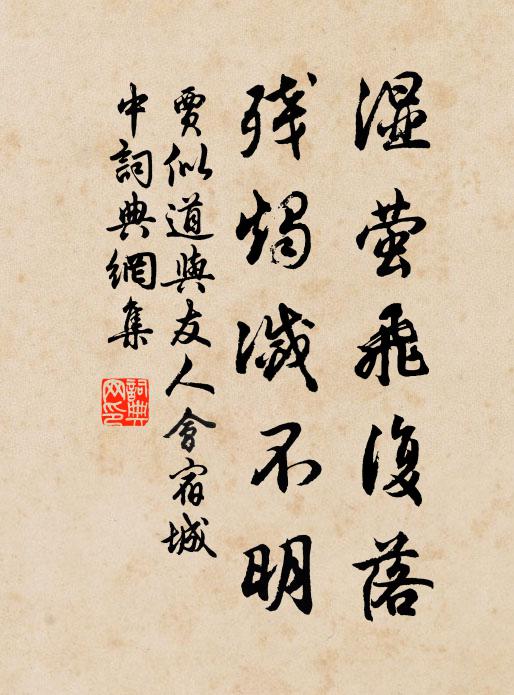 湿萤飛復落
残燭滅不明
賈似道與友人會宿城
中詞典網集
詞典网印